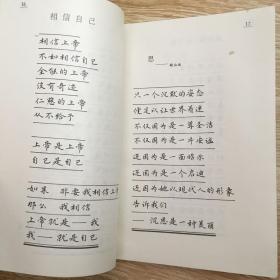 16
相信自己
相信上帝
不如相信自己
全能的上帝
没有奇迹
仁慈的上帝
从不给予
上帝是上帝
自己是自己
如果 非要我相信上帝
那么 我相信
上帝就是——我
我——就是自己
17
思
只一个沉默的姿态
便足以让世界着迷
不仅因为是一尊圣洁
不仅因为是一片安谧
还因为是一面昭示
还因为是一个启迪
还因为她以现代人的形象
告诉我们
——沉思是一种美丽